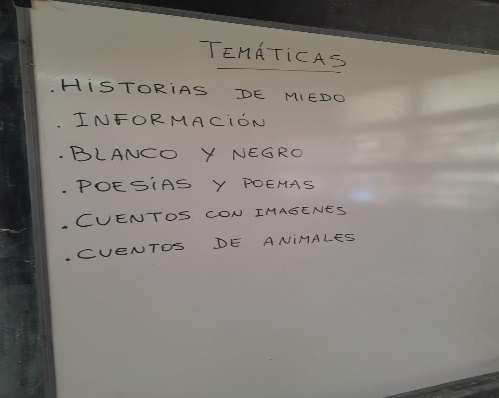 TEMÁTICAS
. HISTORIAS DE MIEDO
. INFORMACIÓN
. BLANCO Y NEGRO
. POESÍAS Y POEMAS
. CUENTOS CON IMAGENES
. CUENTOS DE ANIMALES